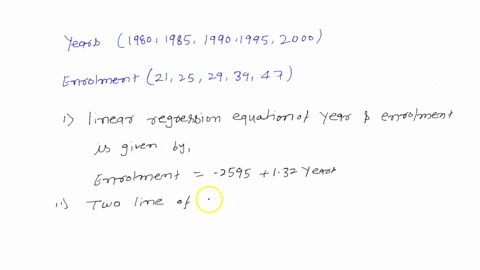 Years (1980, 1985, 1990, 1995, 2000)
Enrolment (21, 25, 29, 39, 47)
i) linear regression equation of year & enrolment
is given by,
Enrolment = -2595 + 1.32 Years
ii) Two line of